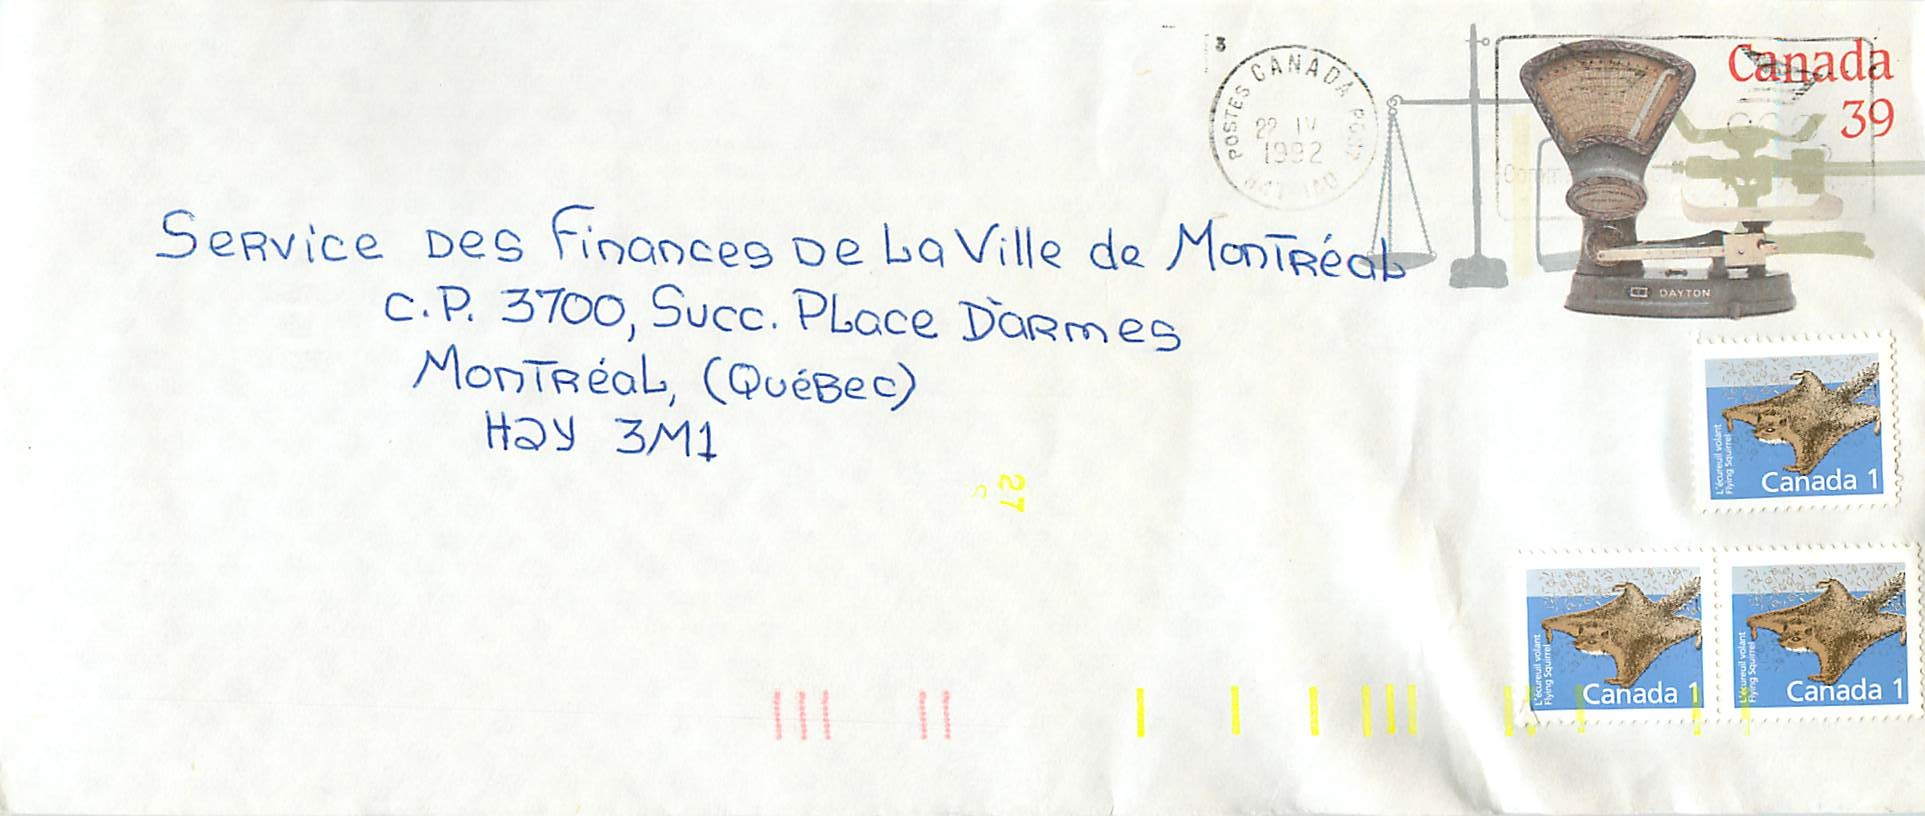 3
POSTES CANADA POST
22 IV
1992
Canada
39
DAYTON
Service des Finances de La Ville de Montréal
C.P. 3700, Succ. Place D'armes
Montréal, (Québec)
H2Y 3M1
27
L'écureuil volant
Flying Squirrel
Canada 1
L'écureuil volant
Flying Squirrel
Canada 1
L'écureuil volant
Flying Squirrel
Canada 1